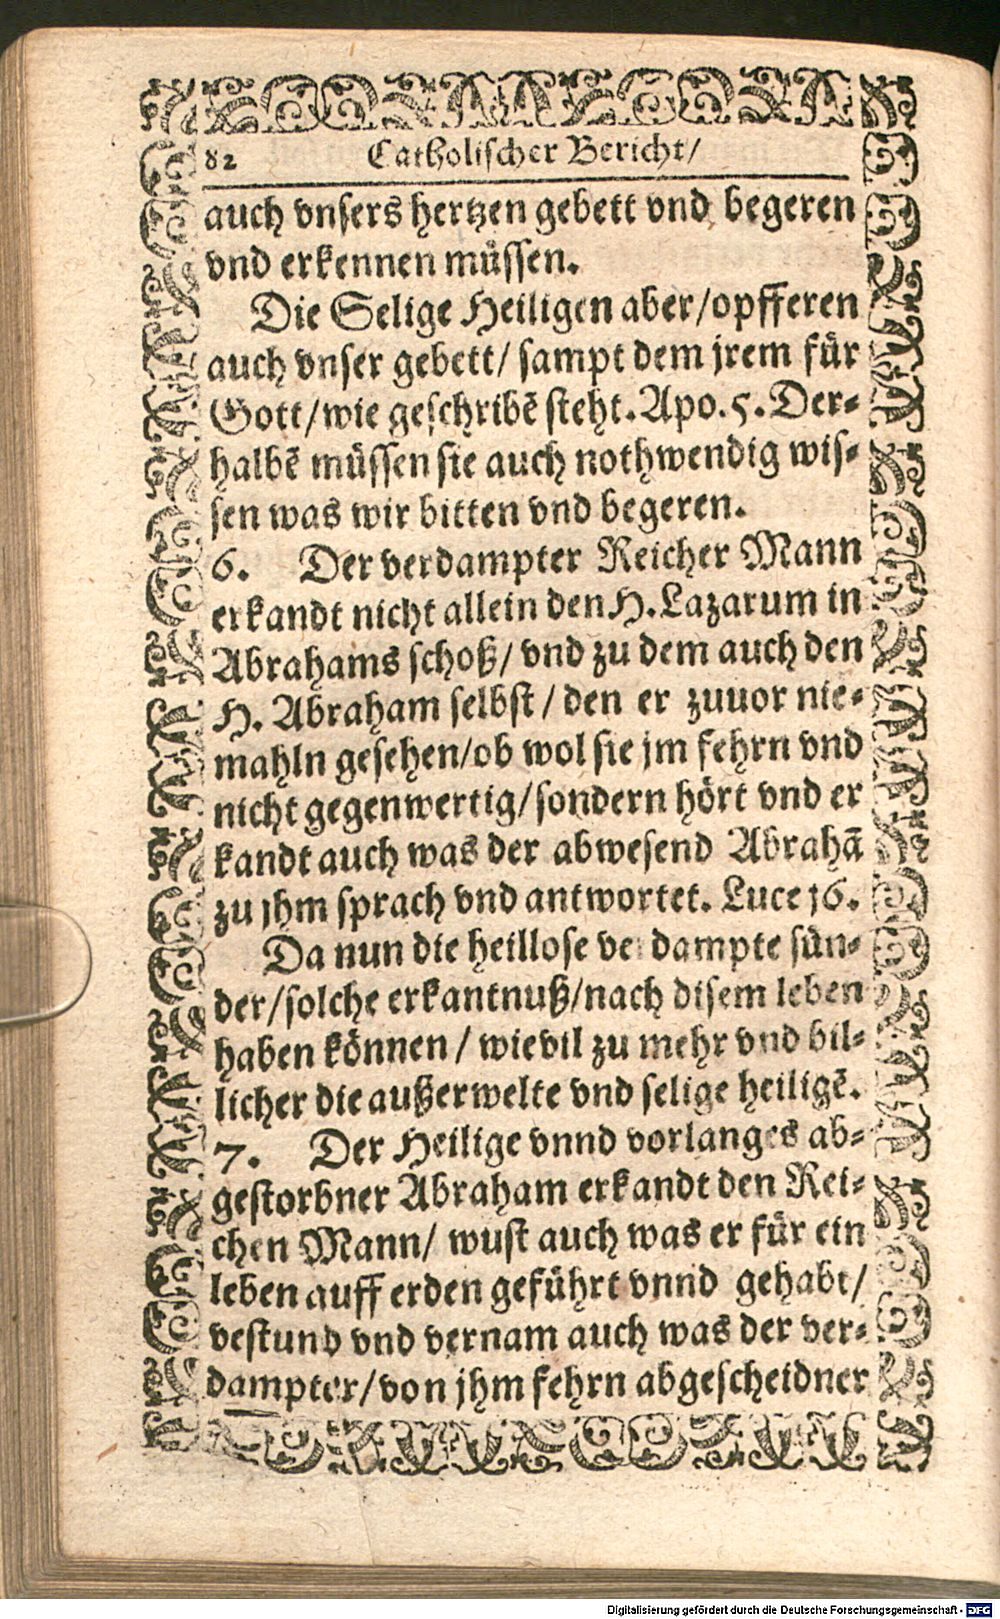 82 Catholischer Bericht/
auch vnsers hertzen gebett vnd begeren
vnd erkennen müssen.
Die Selige Heiligen aber/opfferen
auch vnser gebett/ sampt dem jrem für
Gott/wie geschribē steht. Apo. 5. Der-
halbē müssen sie auch nothwendig wis-
sen was wir bitten vnd begeren.
6. Der verdampter Reicher Mann
erkandt nicht allein den H. Lazarum in
Abrahams schoß/ vnd zu dem auch den
H. Abraham selbst/ den er zuuor nie-
mahln gesehen/ob wol sie jm fehrn vnd
nicht gegenwertig/sondern hört vnd er
kandt auch was der abwesend Abrahā
zu jhm sprach vnd antwortet. Luce 16.
Da nun die heillose verdampte sün-
der/solche erkantnuß/nach disem leben
haben können/ wievil zu mehr vnd bil-
licher die außerwelte vnd selige heiligē.
7. Der Heilige vnnd vorlanges ab-
gestorbner Abraham erkandt den Rei-
chen Mann/ wust auch was er für ein
leben auff erden geführt vnnd gehabt/
vestund vnd vernam auch was der ver-
dampter/von jhm fehrn abgescheidner
Digitalisierung gefördert durch die Deutsche Forschungsgemeinschaft - DFG